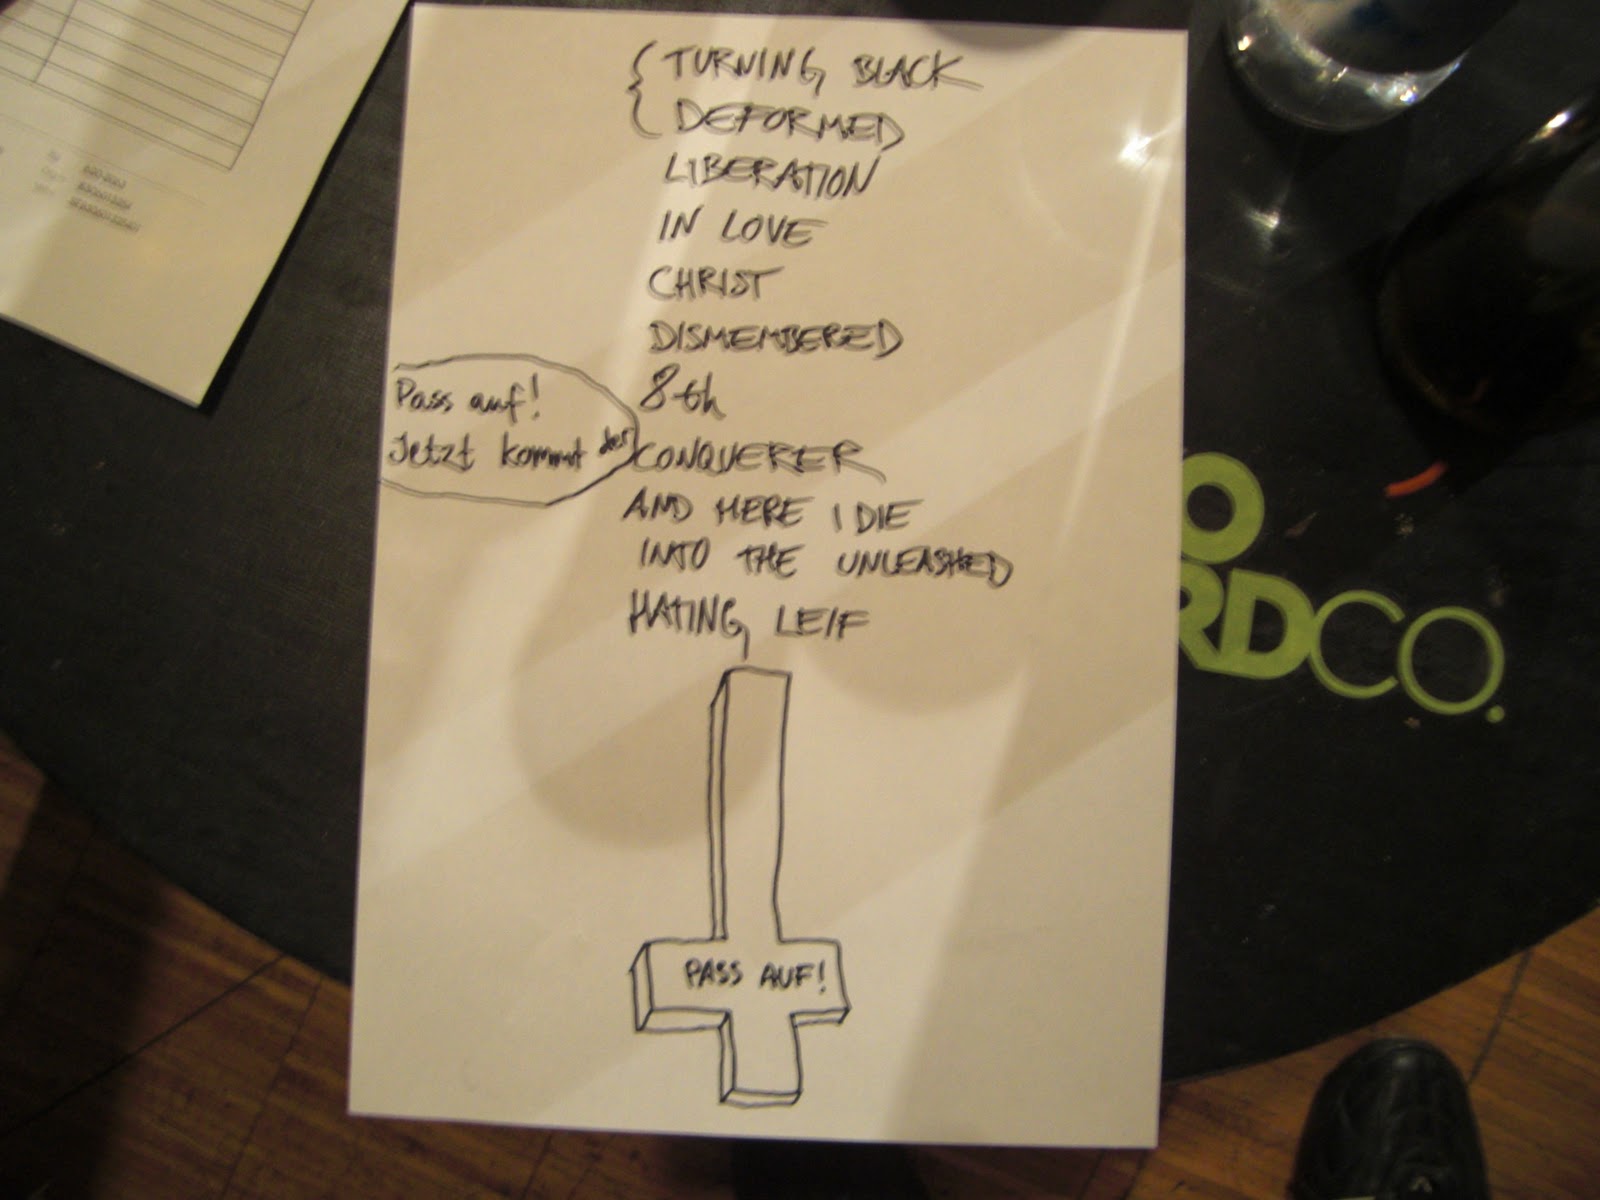 TURNING BLACK
DEFORMED
LIBERATION
IN LOVE
CHRIST
DISMEMBERED
8th
Pass auf!
Jetzt kommt der
CONQUERER
AND HERE I DIE
INTO THE UNLEASHED
HATING LEIF
PASS AUF!
O
RDCO.